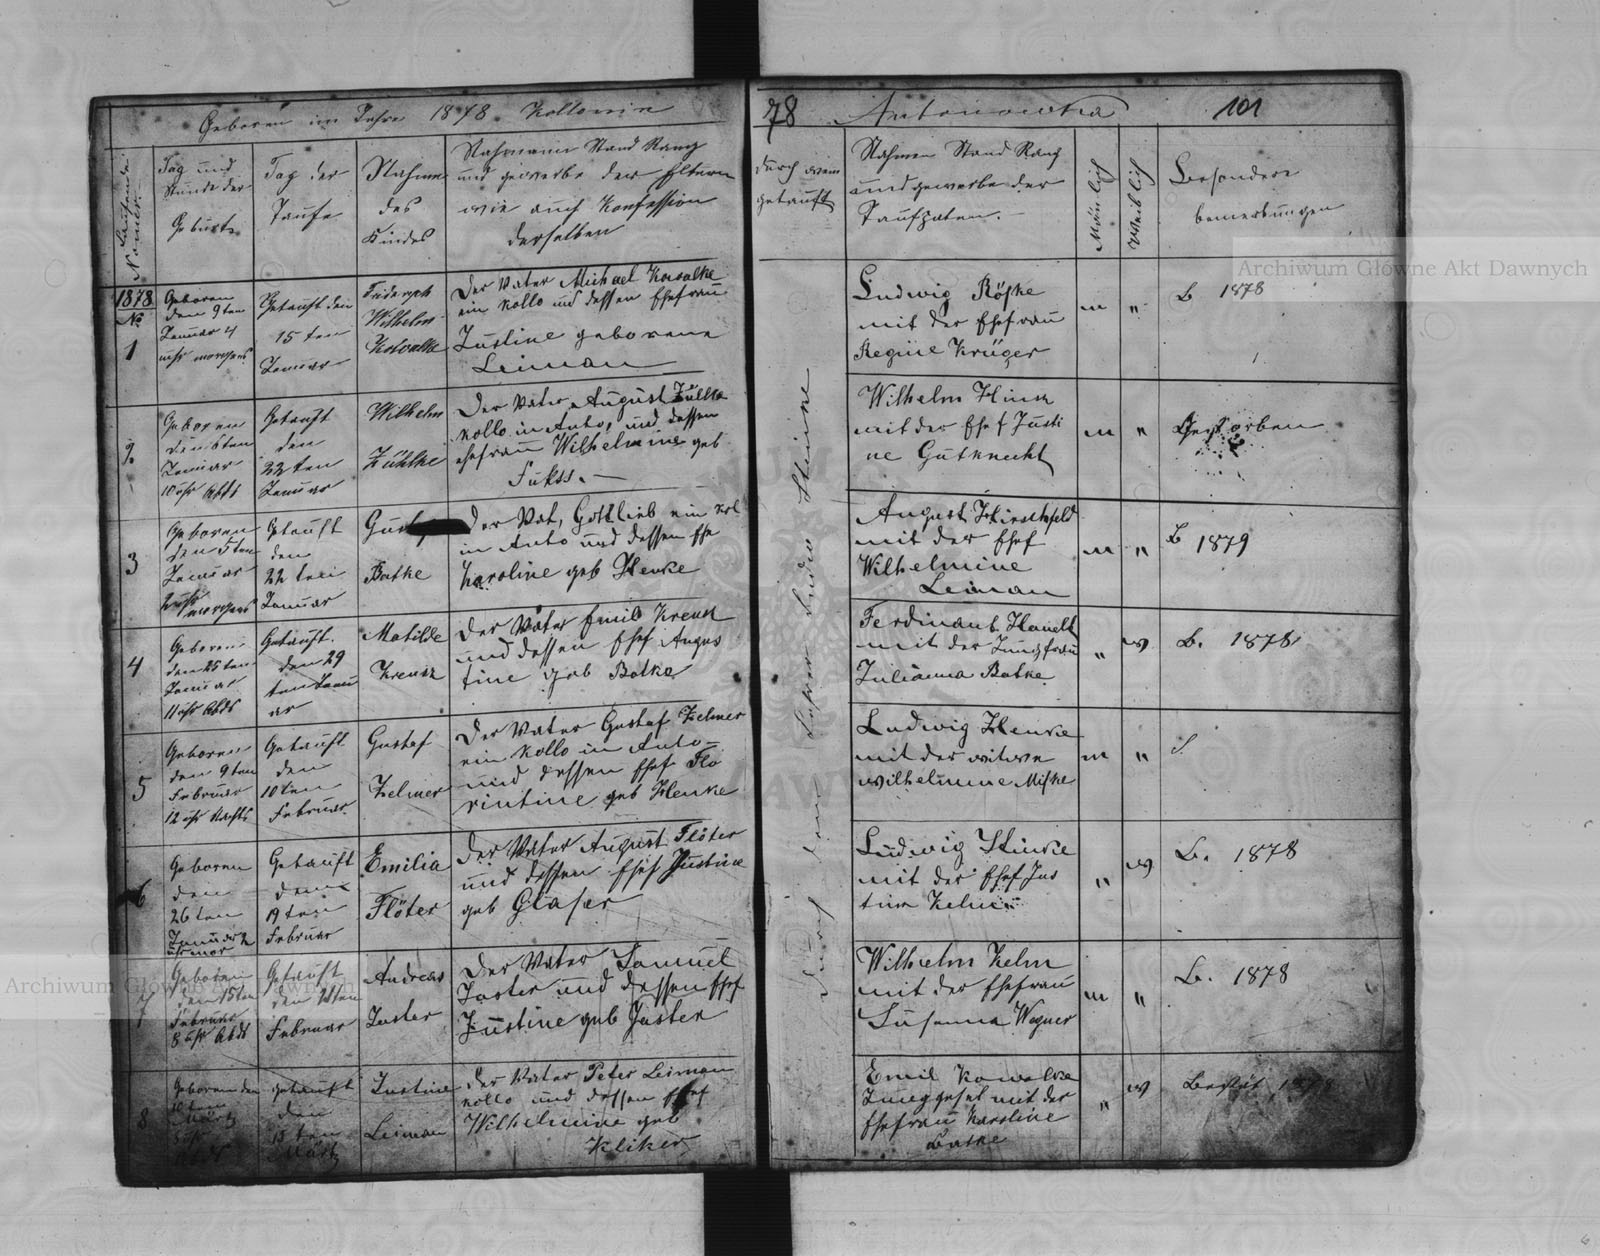 Geboren im Jahre 1878 Kollonie
78 Antonowka 101
Laufende Nomer
Tag und
Stunde der
Geburt
Tag der
Taufe
Nahme
des
Kindes
Nahmen Stand Rang
und gewerbe der Eltern
wie auch Konfession
derselben
durch wem
getauft
Nahmen Stand Rang
und gewerbe der
Taufpaten.
Mänlich
Weiblich
Besondere
bemerkungen
durch den Lehrer Ludw
1878
No
1
Geboren
den 9ten
Januar 4
uhr morgens
Getauft den
15 ten
Januar
Wilhelm
Kowalke
Der Vater Michael Kowalke
ein Kollo und dessen Ehefrau
Justine geborene
Leiman
Ludwig Röske
mit der Ehefrau
Regine Krüger
m
"
L 1878
2
Geboren
den 6ten
Januar
10 uhr Abds
Getauft
den
22 ten
Januar
Wilhelm
Zühlke
Der Vater August Zülke
Kollo in Anto, und dessen
ehefrau Wilhelmine geb
Fukss.
Wilhelm
mit der Ehef Justi
ne Gutknecht
m
"
Gestorben
3
Geboren
den 5ten
Januar
uhr
morgens
Getauft
den
22 ten
Januar
Batke
Der Vat, Gottlieb ein Kol
in Anto und dessen Ehe
Karoline geb Henke
August Hirschfeld
mit der Ehef
Wilhelmine
Leiman
m
"
L 1879
4
Geboren
den 25 ten
Januar
11 uhr Abds
Getauft.
den 29
ten Janu
ar
Matilde
Kreuz
Der Vater Emil Kreuz
und dessen Ehef Augus
tine geb Batke
mit der Jungfrau
Julianna Batke
"
w
L. 1878
5
Geboren
den 9ten
Februar
12 uhr Nachts
Getauft
den
10 ten
Februar
Gustaf
Zelmer
Der Vater Gustaf Zelmer
ein Kollo in Anto-
und dessen Ehef Flo
rintine geb Henke
Ludwig Henke
mit der witwe
wilhelmine Miske
m
"
6
Geboren
den
26 ten
Januar 2
uhr mor
Getauft
den
19 ten
Februar
Emilia
Flöter
Der Vater August Flöter
und dessen Ehef Justine
geb Glaser
Ludwig
mit der Ehef Jus
tine
"
w
L. 1878
7
Geboren
den 15ten
Februar
8 uhr Abds
Getauft
den
Februar
Andreas
Jaster
Der Vater Samuel
Jaster und dessen Ehef
Justine geb Jaster
Wilhelm Kelm
mit der Ehefrau
Susanna Wegner
m
"
L. 1878
8
Geboren den
ten
Märtz
Getauft
den
15 ten
Märtz
Justine
Leiman
der Vater Peter Leiman
Kollo und dessen Ehef
Wilhelmine geb
Kliker
Emil Kowalke
Junggesel mit der
Ehefrau Karoline
Batke
"
w
Archiwum Główne Akt Dawnych
Archiwum Główne Akt Dawnych